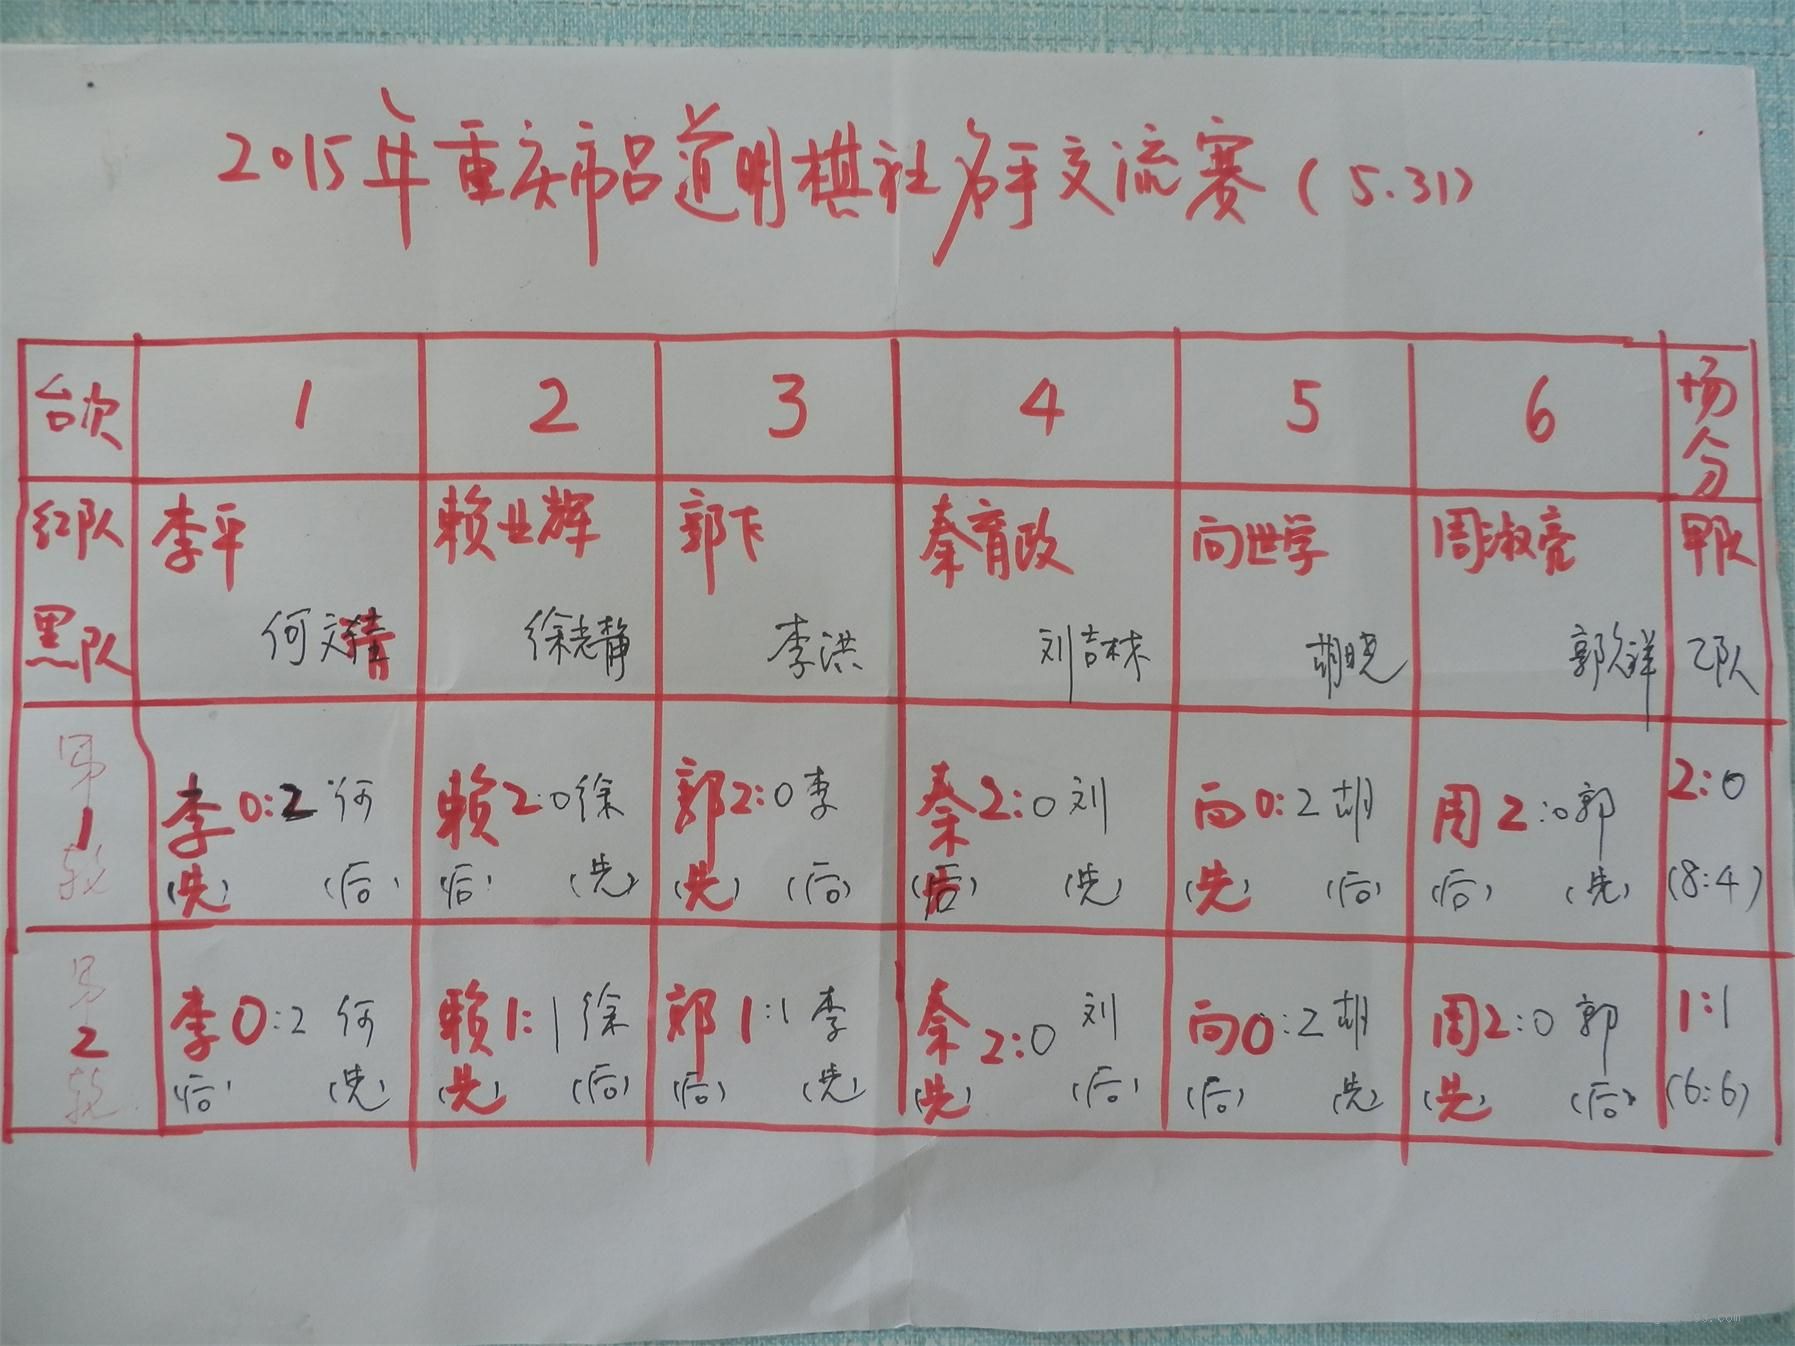 2015年重庆市吕道明棋社名手交流赛(5.31)
台次 1 2 3 4 5 6 场分
红队 李平 赖业辉 郭卞 秦育政 向世学 周淑亮 甲队
黑队 何文 徐老静 李洪 刘吉林 胡晓 郭 祥 乙队
第1轮 李0:2何 赖2:0徐 郭2:0李 秦2:0刘 向0:2胡 周2:0郭 2:0
(先) (后) (后) (先) (先) (后) (后) (先) (先) (后) (后) (先) (8:4)
第2轮 李0:2何 赖1:1徐 郑1:1李 秦2:0刘 向0:2胡 周2:0郭 1:1
(后) (先) (先) (后) (后) (先) (先) (后) (后) (先) (先) (后) (6:6)